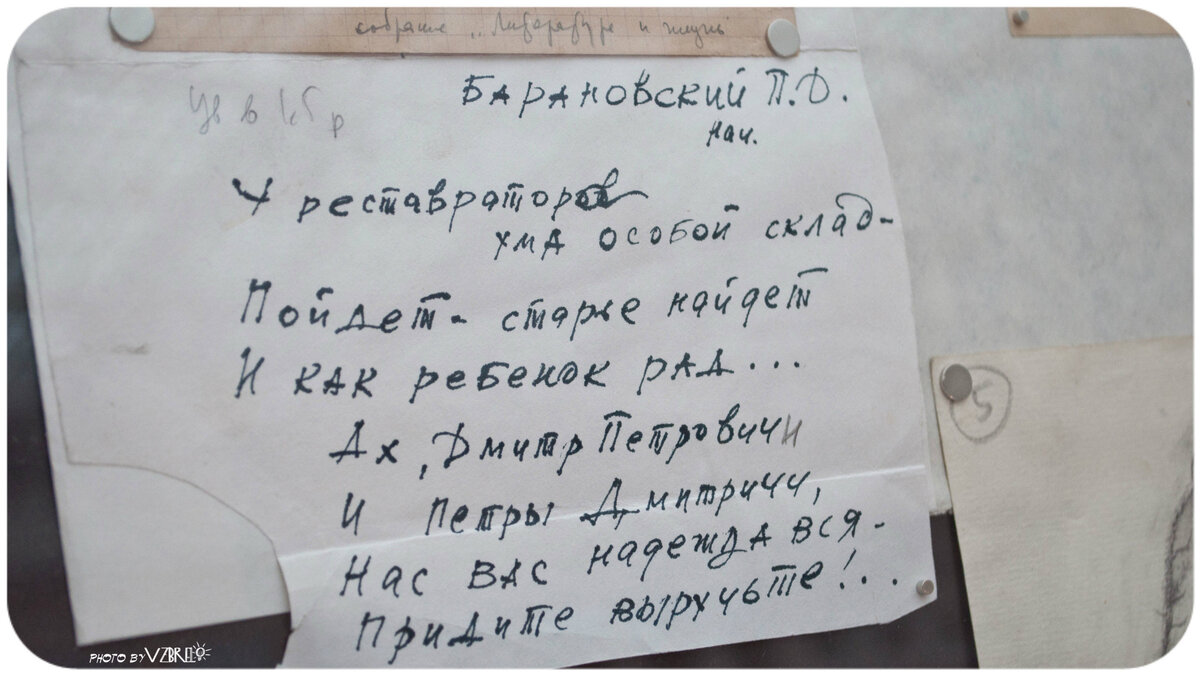 собрание „Литература и жизнь
БАРАНОВСКИЙ П.Д.
нач.
У реставраторов
ума особой склад-
Пойдет - старье найдет
И как ребенок рад...
Ах, Дмитр Петровичи
И Петры Дмитричи,
Нас вас надежда вся-
Придите выручьте!...
5
PHOTO BY VZBRELO